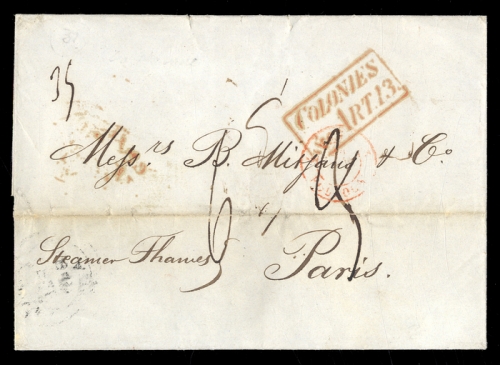 35
COLONIES
ART.13.
Mess.rs B. Mitjans & Co
Steamer Thames
Paris.